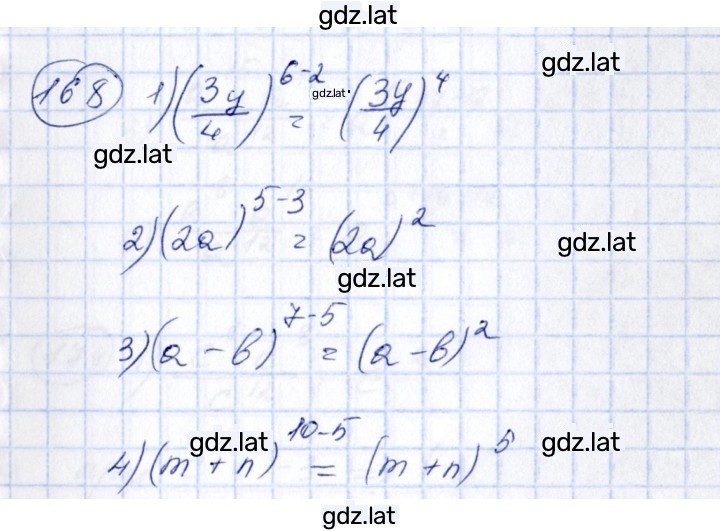 gdz.lat
gdz.lat
168 1) (3y/4)^6-2 = (3y/4)^4
gdz.lat
gdz.lat
2) (2a)^5-3 = (2a)^2
gdz.lat
gdz.lat
3) (a - b)^7-5 = (a - b)^2
gdz.lat
gdz.lat
4) (m + n)^10-5 = (m + n)^5
gdz.lat